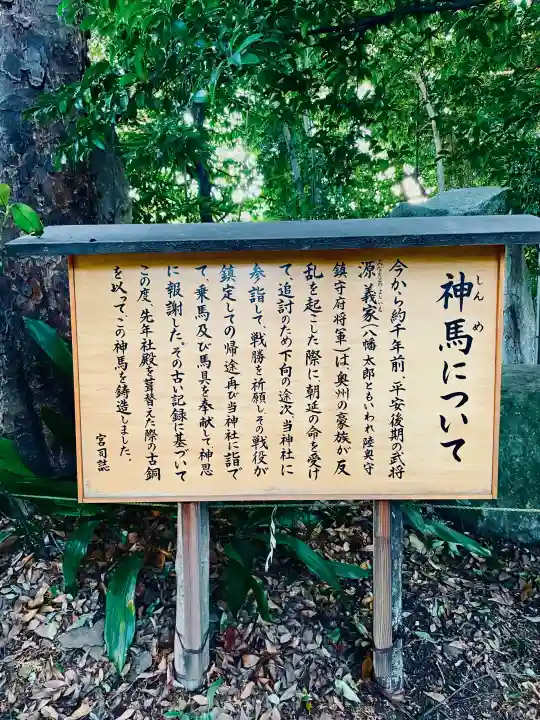 神馬について
しんめ
今から約千年前、平安後期の武将
源義家(八幡太郎ともいわれ陸奥守
みなもとのよしいえ
鎮守府将軍)は、奥州の豪族が反
乱を起こした際に朝廷の命を受け
て、追討のため下向の途次、当神社に
参詣して、戦勝を祈願し、その戦役が
鎮定しての帰途、再び当神社に詣で
て、乗馬及び馬具を奉献して神恩
に報謝した。その古い記録に基づいて
この度、先年社殿を葺替えた際の古銅
を以って、この神馬を鋳造しました。
宮司誌